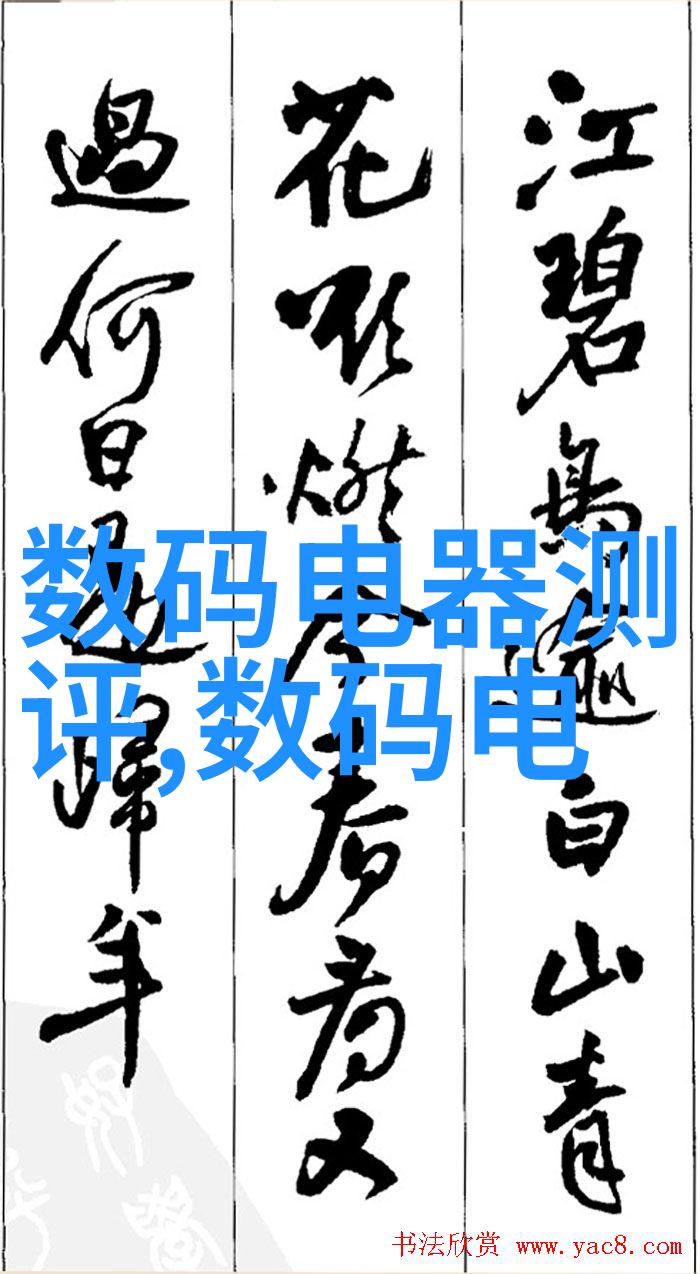 江碧鳥逾白山青
花欲燃今春看又
過何日是歸年
数码电器测
评,数码电
书法欣赏 www.yac8.com